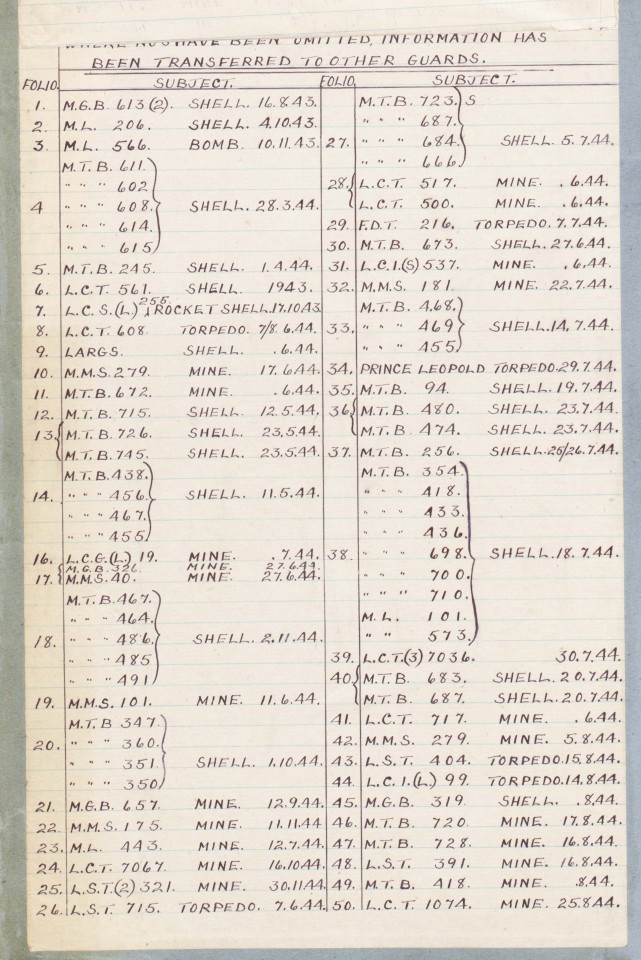 WHERE NOS HAVE BEEN OMITTED, INFORMATION HAS
BEEN TRANSFERRED TO OTHER GUARDS.
FOLIO. SUBJECT.
1. M.G.B. 613(2). SHELL. 16.8.43.
2. M.L. 206. SHELL. 4.10.43.
3. M.L. 566. BOMB. 10.11.43.
M.T.B. 611.
" " " 602
4 " " " 608. SHELL. 28.3.44.
" " " 614.
" " " 615
5. M.T.B. 245. SHELL. 1.4.44.
6. L.C.T. 561. SHELL. 1943.
7. L.C.S.(L) 255. ROCKET SHELL. 17.10.43
8. L.C.T. 608. TORPEDO. 7/8.6.44.
9. LARGS. SHELL. .6.44.
10. M.M.S. 279. MINE. 17.6.44.
11. M.T.B. 672. MINE. .6.44.
12. M.T.B. 715. SHELL. 12.5.44.
13. M.T.B. 726. SHELL. 23.5.44.
M.T.B. 745. SHELL. 23.5.44.
M.T.B. 438.
14. " " " 456. SHELL. 11.5.44.
" " " 467.
" " " 455
16. L.C.G.(L.) 19. MINE. .7.44.
M.G.B. 326. MINE. 27.6.44.
17. M.M.S. 40. MINE. 27.6.44.
M.T.B. 467.
" " " 464.
18. " " " 486. SHELL. 2.11.44.
" " " 485
" " " 491
19. M.M.S. 101. MINE. 11.6.44.
M.T.B 347.
20. " " " 360.
" " " 351. SHELL. 1.10.44.
" " " 350.
21. M.G.B. 657. MINE. 12.9.44.
22. M.M.S. 175. MINE. 11.11.44
23. M.L. 443. MINE. 12.7.44.
24. L.C.T. 7067. MINE. 16.10.44.
25. L.S.T.(2) 321. MINE. 30.11.44.
26. L.S.T. 715. TORPEDO. 7.6.44.
FOLIO. SUBJECT.
M.T.B. 723. S
" " " 687.
27. " " " 684. SHELL. 5.7.44.
" " " 666.
28. L.C.T. 517. MINE. .6.44.
L.C.T. 500. MINE. .6.44.
29. F.D.T. 216. TORPEDO. 7.7.44.
30. M.T.B. 673. SHELL. 27.6.44.
31. L.C.I.(S) 537. MINE. .6.44.
32. M.M.S. 181. MINE. 22.7.44.
M.T.B. 468.
33. " " " 469 SHELL. 14.7.44.
" " " 455
34. PRINCE LEOPOLD TORPEDO. 29.7.44.
35. M.T.B. 94. SHELL. 19.7.44.
36. M.T.B. 480. SHELL. 23.7.44.
M.T.B. 474. SHELL. 23.7.44.
37. M.T.B. 256. SHELL. 25/26.7.44.
M.T.B. 354.
" " " 418.
" " " 433.
" " " 436.
38. " " " 698. SHELL. 18.7.44.
" " " 700.
" " " 710.
M.L. 101.
" " 573.
39. L.C.T.(3) 7036. 30.7.44.
40. M.T.B. 683. SHELL. 20.7.44.
M.T.B. 687. SHELL. 20.7.44.
41. L.C.T. 717. MINE. .6.44.
42. M.M.S. 279. MINE. 5.8.44.
43. L.S.T. 404. TORPEDO. 15.8.44.
44. L.C.I.(L.) 99. TORPEDO. 14.8.44.
45. M.G.B. 319. SHELL. .8.44.
46. M.T.B. 720. MINE. 17.8.44.
47. M.T.B. 728. MINE. 16.8.44.
48. L.S.T. 391. MINE. 16.8.44.
49. M.T.B. 418. MINE. .8.44.
50. L.C.T. 1074. MINE. 25.8.44.